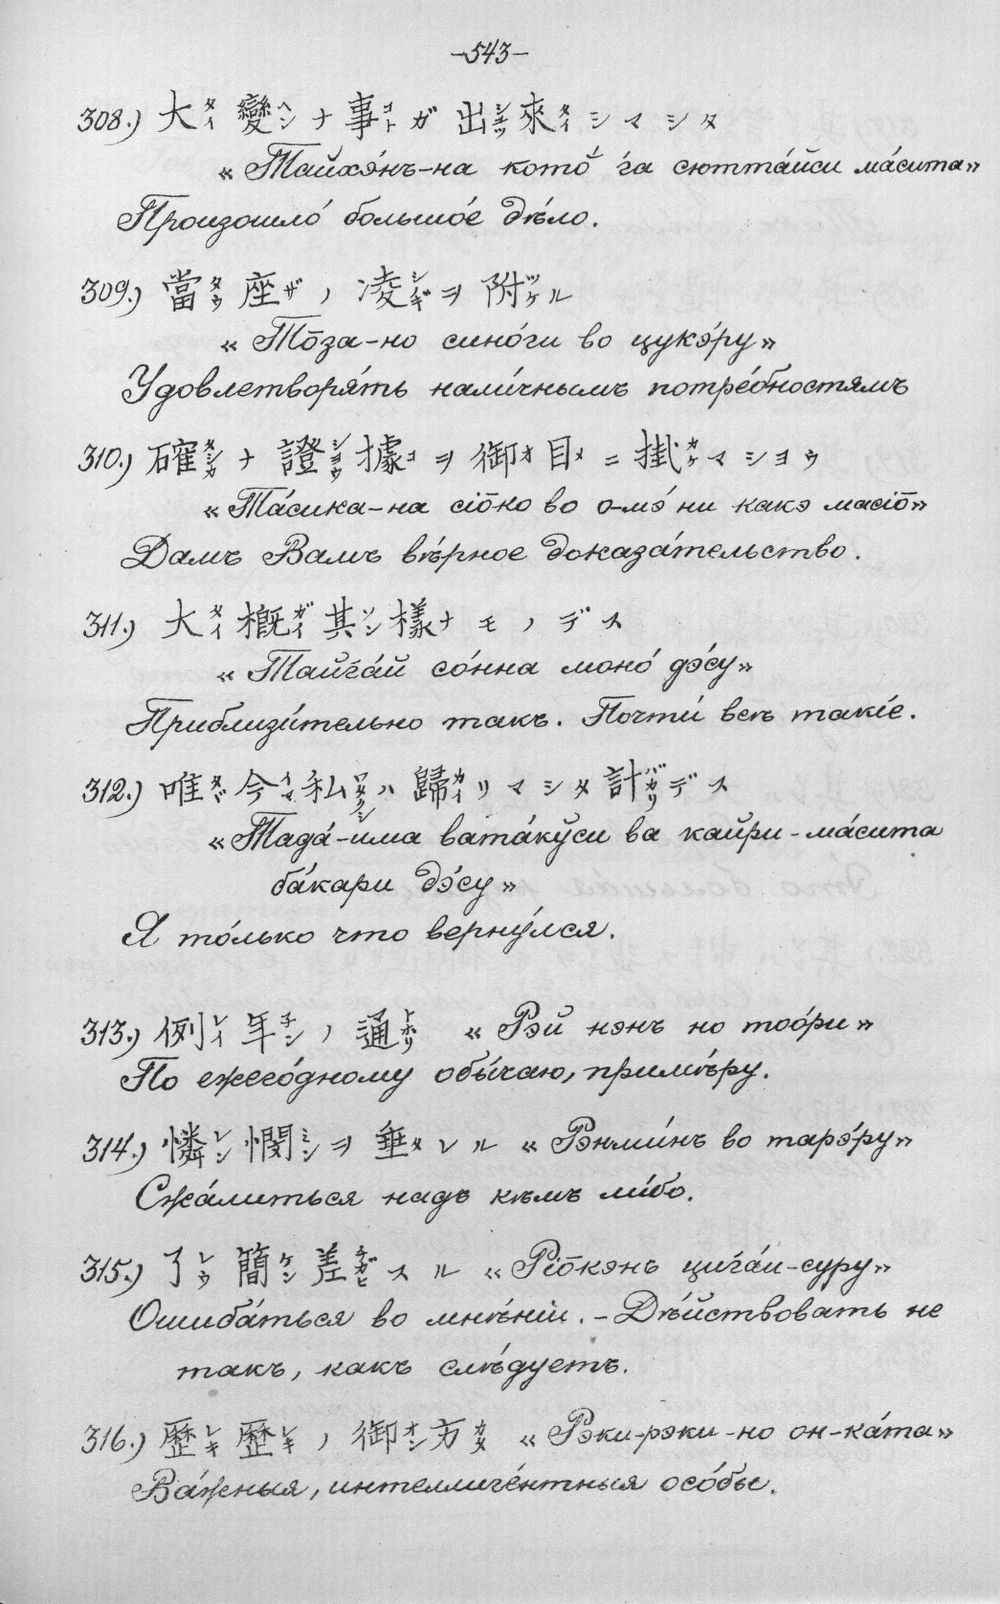 –543–
308.) 大タイ變ヘンナ事コトガ出シュツ來タイシマシタ
«Тайхэ́нъ-на кото́ г̇а сютта́йси ма́сита»
Произошло́ большо́е дѣ́ло.
309.) 當タウ座ザノ凌シノギヲ附ツケル
«То̄за-но сино́ги во цукэ́ру»
Удовлетворя́ть нали́чнымъ потре́бностямъ
310.) 確タシカナ證ショウ據コヲ御オ目メニ掛カケマショウ
«Та́сика-на сіо̄ко во о-мэ́ ни какэ масіо̄»
Дамъ Вамъ вѣ́рное доказа́тельство.
311.) 大タイ概ガイ其ソン樣ナモノデス
«Тайг̇а́й со́нна моно́ дэ́су»
Приблизи́тельно такъ. Почти́ всѣ такі́е.
312.) 唯タダ今イマ私ワタクシハ歸カイリマシタ計バカリデス
«Тада́-има вата́кўси ва каири-ма́сита
ба́кари дэ́су»
Я то́лько что верну́лся.
313.) 例レイ年子ンノ通トホリ «Рэй нэнъ но тоо́ри»
По ежего́дному обы́чаю, примѣ́ру.
314.) 憐レン憫ミンヲ垂タレル «Рэнми́нъ во тарэ́ру»
Сжа́литься надъ кѣмъ ли́бо.
315.) 了レウ簡ケン差チガヒスル «Ріо̄кэнъ циг̇а́и-суру»
Ошиба́ться во мнѣ́ніи. – Дѣ́йствовать не
такъ, какъ слѣ́дуетъ.
316.) 歷レキ歷レキノ御オン方カタ «Рэки-рэки-но он-ка́та»
Ва́жныя, интеллиге́нтныя осо́бы.